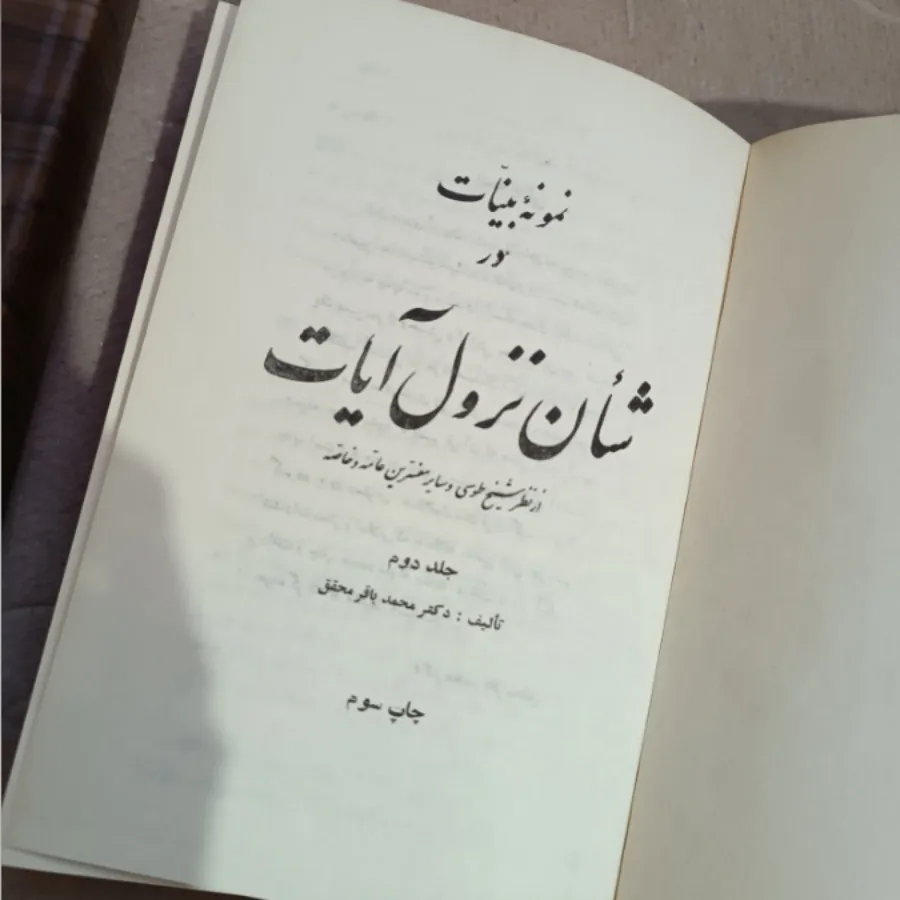 نمونهٔ بینّات
در
شأن نزول آیات
از نظر شیخ طوسی و سایر مفسرین عامّه و خاصّه
جلد دوم
تألیف : دکتر محمد باقر محقق
چاپ سوم